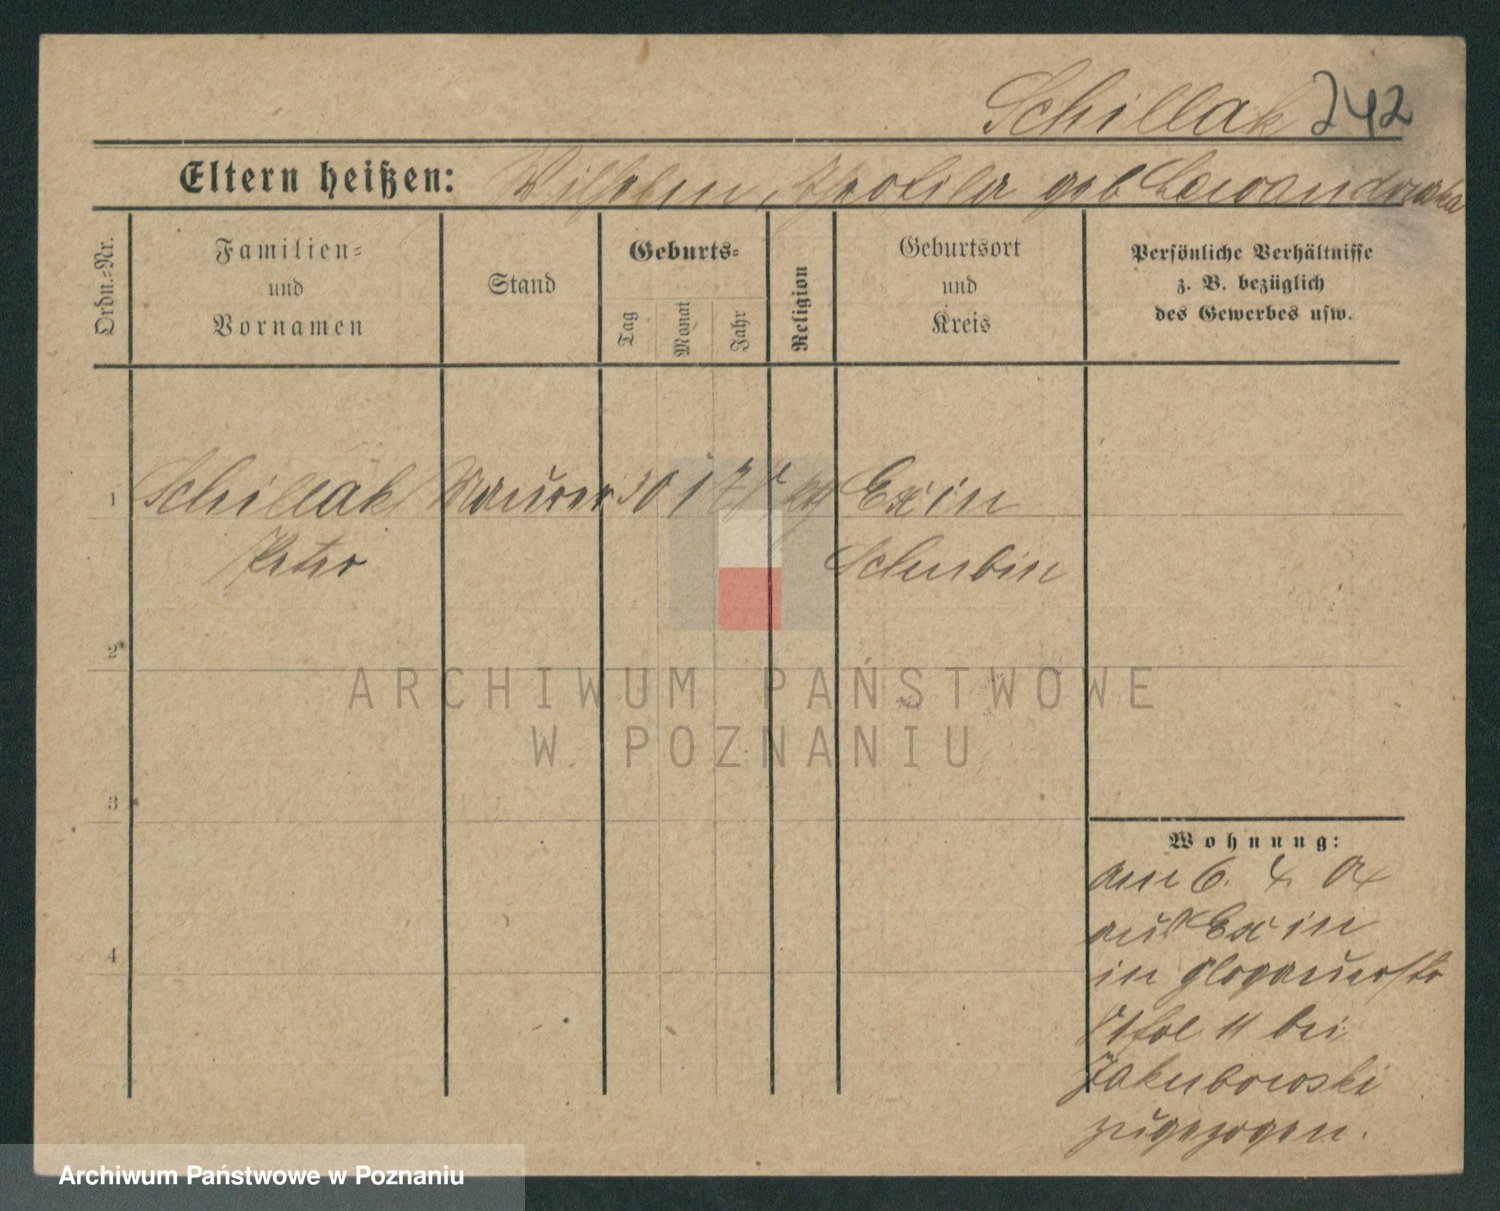 Schillak 242
Eltern heißen: Wilhelm, Theofila geb Lewandowska
Ordn.-Nr.
Familien-
und
Vornamen
Stand
Geburts-
Tag
Monat
Jahr
Religion
Geburtsort
und
Kreis
Persönliche Verhältnisse
z. B. bezüglich
des Gewerbes usw.
1 Schillak Maurer 30 1 Exin
Peter Schubin
2
3
4
Wohnung:
am 6. 4. 04
aus Exin
in Glogauerstr
11 bei
Jakubowski
zugezogen.
ARCHIWUM PAŃSTWOWE
W POZNANIU
Archiwum Państwowe w Poznaniu